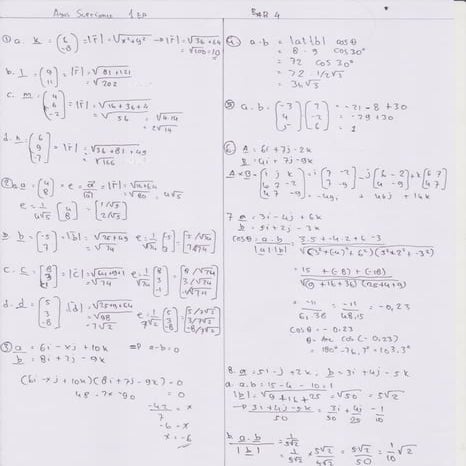 ① a. k = (6 -8) = |r| = √x²+y² → |r| = √36+64 = √100 = 10
b. l = (9 11) = |r| = √81+121
= √202
c. m = (4 6 -2) = |r| = √16+36+4
= √56 = √4·14
= 2√14
d. n = (6 9 -7) = |r| = √36+81+49
= √166
② a. a = (4 8) = e = a/|a| = |r| = √16+64
= √80 = 4√5
e = 1/4√5 (4 8) = [1/√5 2/√5]
b. b = (-5 7) = |b| = √25+49 e = 1/√74
= √74
c. c = (8 3 -1) = |c| = √64+9+1 e = 1/√74 (8 3 -1) = (8/√74 3/√74 -1/√74)
= √74
d. d = (5 3 -8) |d| = √25+9+64 e = 1/7√2 (5 3 -8)
= √98
= 7√2
③ a = 6i - xj + 10k => a·b = 0
b = 8i + 7j - 9k
(6i - xj + 10k)(8i + 7j - 9k) = 0
48 - 7x - 90 = 0
-42/7 = x
-6 = x
x = -6
BAB 4
④ a·b = |a| |b| cos θ
= 8 · 9 cos 30°
= 72 cos 30°
= 72 · 1/2√3
= 36√3
⑤ a·b = (-3 4 5) (7 -2 6) = -21 - 8 + 30
= -29 + 30
= 1
⑥ A = 6i + 7j - 2k
B = 4i + 7j - 9k
A x B = |i j k 6 7 -2 4 7 -9| = i |7 -2 7 -9| - j |6 -2 4 -9| + k |6 7 4 7|
= -49i + 46j + 14k
7 a = 3i - 4j + 6k
b = 5i + 2j - 3k
cos θ = a·b / |a| |b| = 3.5 + -4.2 + 6.-3 / √(3²+(-4)²+6²)(5²+2²+-3²)
= 15 + (-8) + (-18) / √(9+16+36)(25+4+9)
= -11/48,15 = -0,23
cos θ = -0,23
θ = Arc cos (-0,23)
= 180° - 76,7° = 103.3°
8. a = 5i - j + 2k, b = 3i + 4j - 5k
a. a·b = 15 - 4 - 10 = 1
|b| = √9+16+25 = √50 = 5√2
→ 3i + 4j - 5k / 50 = 3i/50 + 4j/
b. a·b / |b| = 1/5√2
= 1/5√2 × = 5√2/50 = 1/10 √2